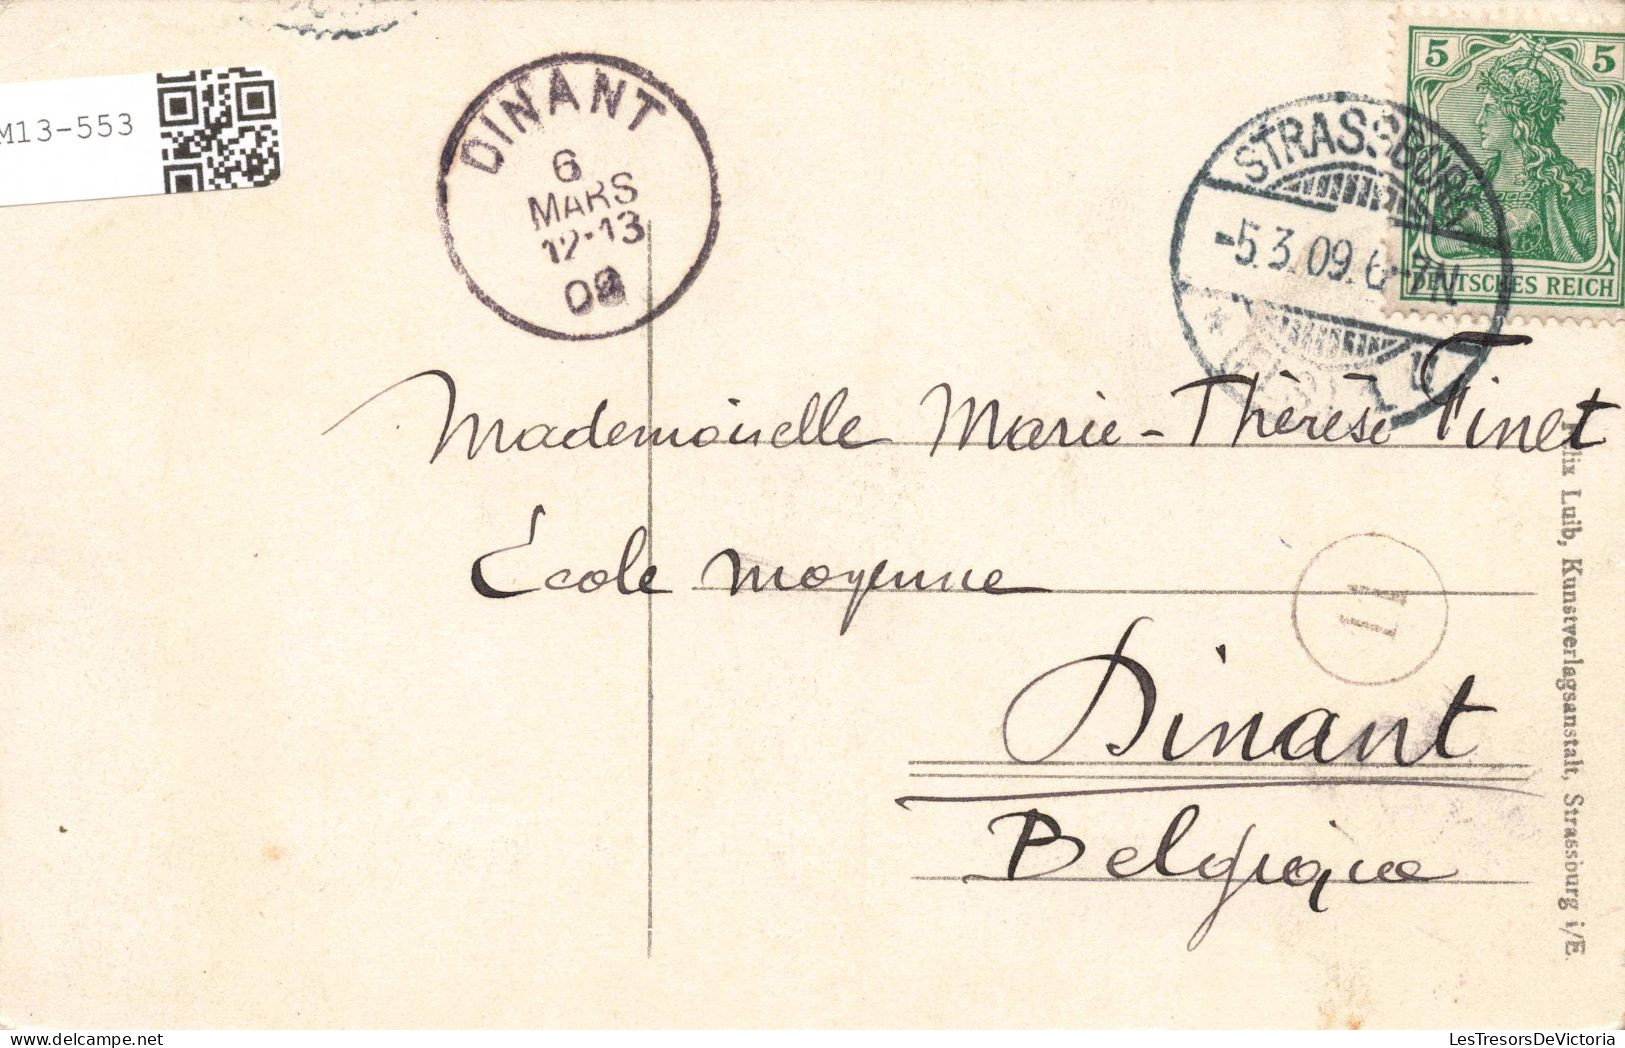 M13-553
DINANT
6
MARS
12-13
09
STRASSBURG
-5.3.09.6-7N
5 5
DEUTSCHES REICH
Mademoiselle Marie-Thérèse Finet
École moyenne
Dinant
Belgique
11
Felix Luib, Kunstverlagsanstalt, Strassburg i/E.
LesTresorsDeVictoria